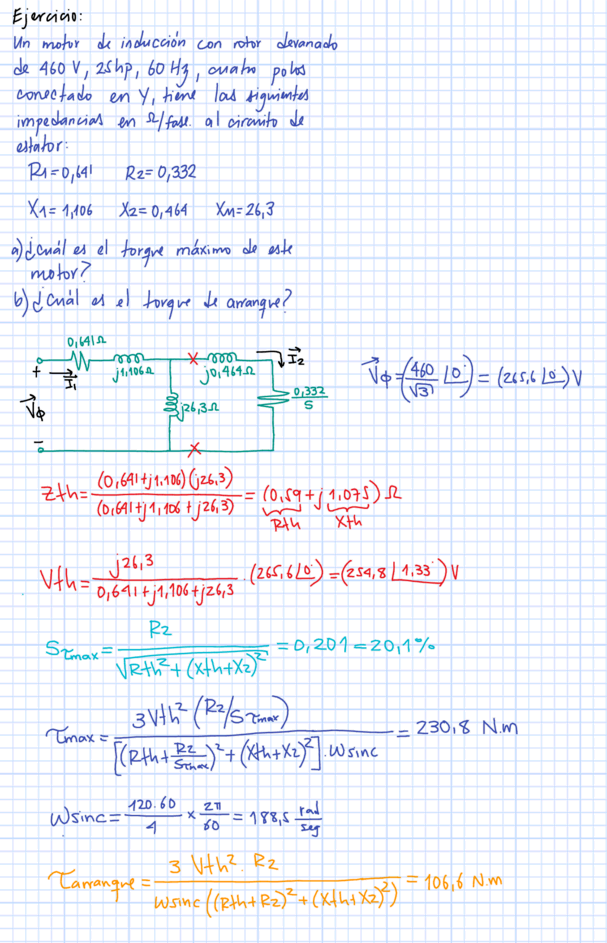 Ejercicio:
Un motor de inducción con rotor devanado
de 460 V, 25hp, 60 Hz, cuatro polos
conectado en Y, tiene las siguientes
impedancias en Ω/fase. al circuito de
estator:
R1=0,641 R2=0,332
X1=1,106 X2=0,464 XM=26,3
a) ¿cuál es el torque máximo de este
motor?
b) ¿Cuál es el torque de arranque?
0,641Ω
j1,106Ω j0,464Ω I⃗2
+ I⃗1
j26,3Ω 0,332/S
V⃗ϕ
-
V⃗ϕ=(460/√3 ∠0°) = (265,6 ∠0°) V
Zth = (0,641+j1,106)(j26,3)/(0,641+j1,106+j26,3) = (0,59 + j 1,075) Ω
Rth Xth
Vth = j26,3/(0,641+j1,106+j26,3) · (265,6 ∠0°) = (254,8 ∠1,33°) V
Sτmax = R2/√(Rth² + (Xth+X2)²) = 0,201 = 20,1%
τmax = 3Vth² (R2/Sτmax)/([(Rth + R2/Sτmax)² + (Xth+X2)²] · Wsinc) = 230,8 N.m
Wsinc = 120.60/4 × 2π/60 = 188,5 rad/seg
τarranque = 3 Vth² · R2/(Wsinc ((Rth+R2)² + (Xth+X2)²)) = 106,6 N.m